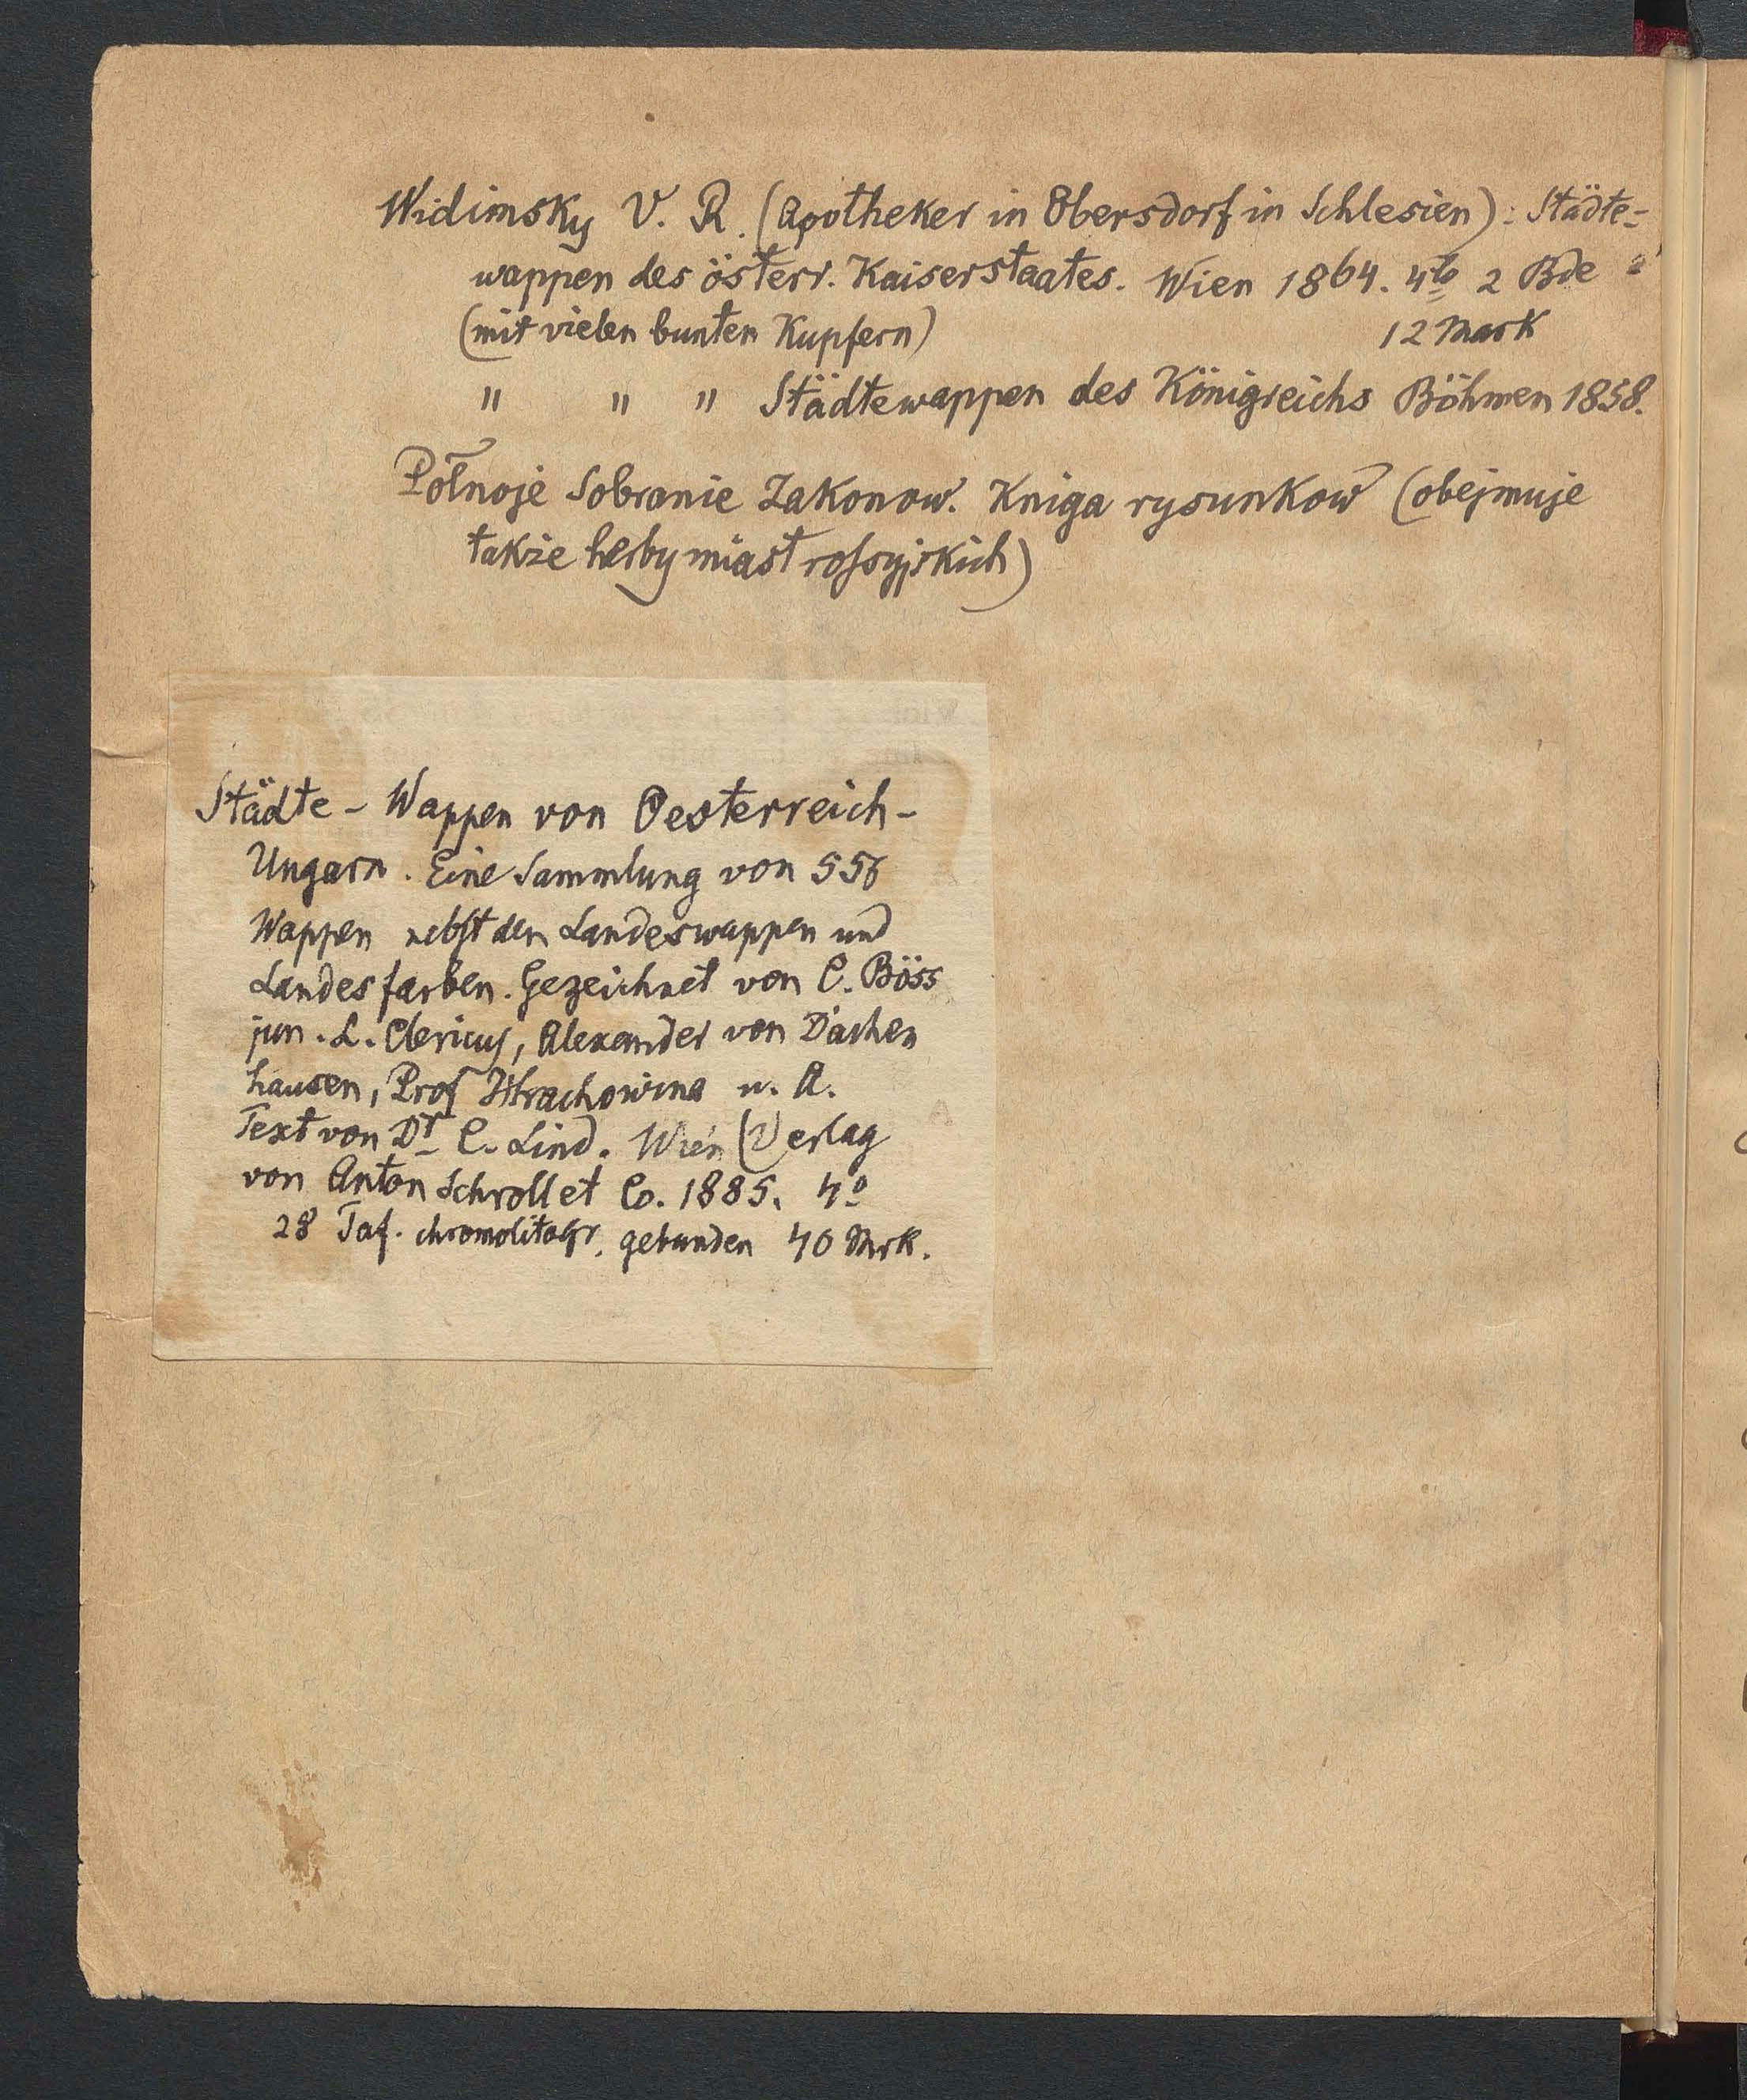 Widimsky V. R. (Apotheker in Obersdorf in Schlesien): Städte-
wappen des österr. Kaiserstaates. Wien 1864. 4to 2 Bde à
(mit vielen bunten Kupfern) 12 Mark
" " " Städtewappen des Königreichs Böhmen 1858.
Połnoje Sobranie Zakonow. Kniga rysunkow (obejmuje
także herby miast rossyjskich)
Städte-Wappen von Oesterreich-
Ungarn. Eine Sammlung von
Wappen nebst den Landeswappen und
Landesfarben. Gezeichnet von C. Böss
jun. L. Clericus, Alexander von Dachen
hausen, Prof Hrachowina u. A.
Text von Dr C. Lind. Wien (Verlag
von Anton Schroll et Co. 1885. 4o
28 Taf. chromolitogr. gebunden 40 Mrk.